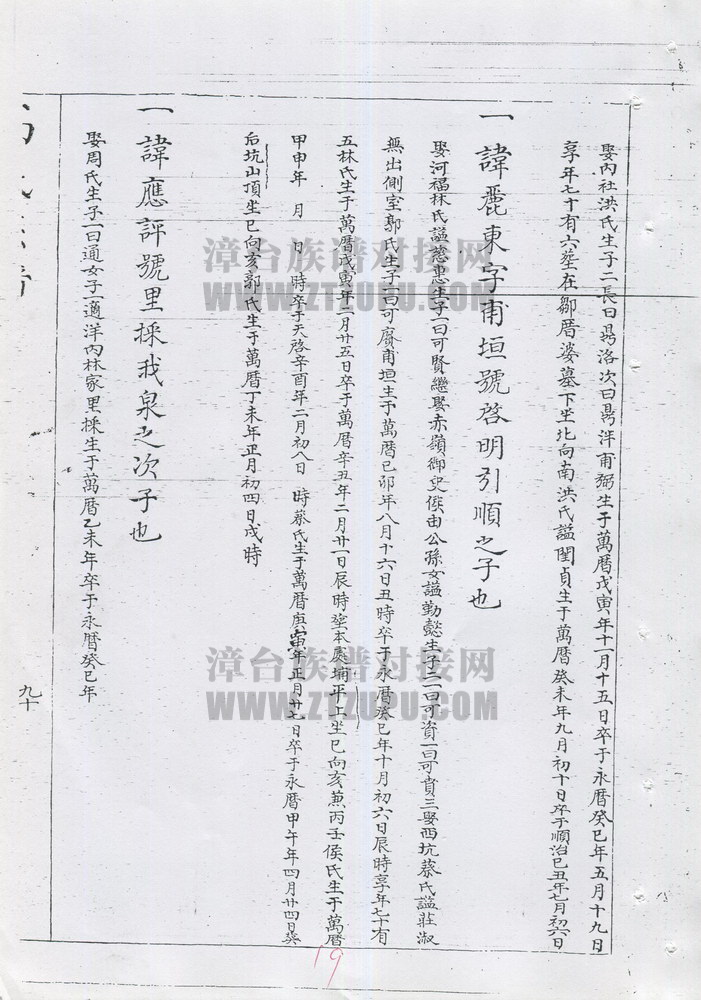 娶內社洪氏生子二長曰昺洛次曰昺泮甫弼生于萬曆戊寅年十一月十五日卒于永曆癸巳年五月十九日
享年七十有六塟在鄒厝婆墓下坐北向南洪氏謚閨貞生于萬曆癸未年九月初十日卒于順治己丑年七月初六日
一諱麗東字甫垣號啓明引順之子也
娶河福林氏謚慈惠生子一曰可賢繼娶赤嶺御史侯由公孫女謚勤懿生子二一曰可資一曰可賁三娶西坑蔡氏謚莊淑
無出側室郭氏生子一曰可賡甫垣生于萬曆己卯年八月十六日丑時卒于永曆癸巳年十月初六日辰時享年七十有
五林氏生于萬曆戊寅年二月廿五日卒于萬曆辛丑年二月廿一日辰時塟本處埔平上坐巳向亥兼丙壬侯氏生于萬曆
甲申年 月 日 時卒于天啓辛酉年二月初八日 時蔡氏生于萬曆庚寅年正月廿七日卒于永曆甲午年四月廿四日塟
后坑山頂坐巳向亥郭氏生于萬曆丁未年正月初四日戌時
一諱應評號里採我泉之次子也
娶周氏生子一曰通女子一適洋內林家里採生于萬曆乙未年卒于永曆癸巳年
九十
19
漳台族谱对接网
WWW.ZTZUPU.COM
漳台族谱对接网
WWW.ZTZUPU.COM